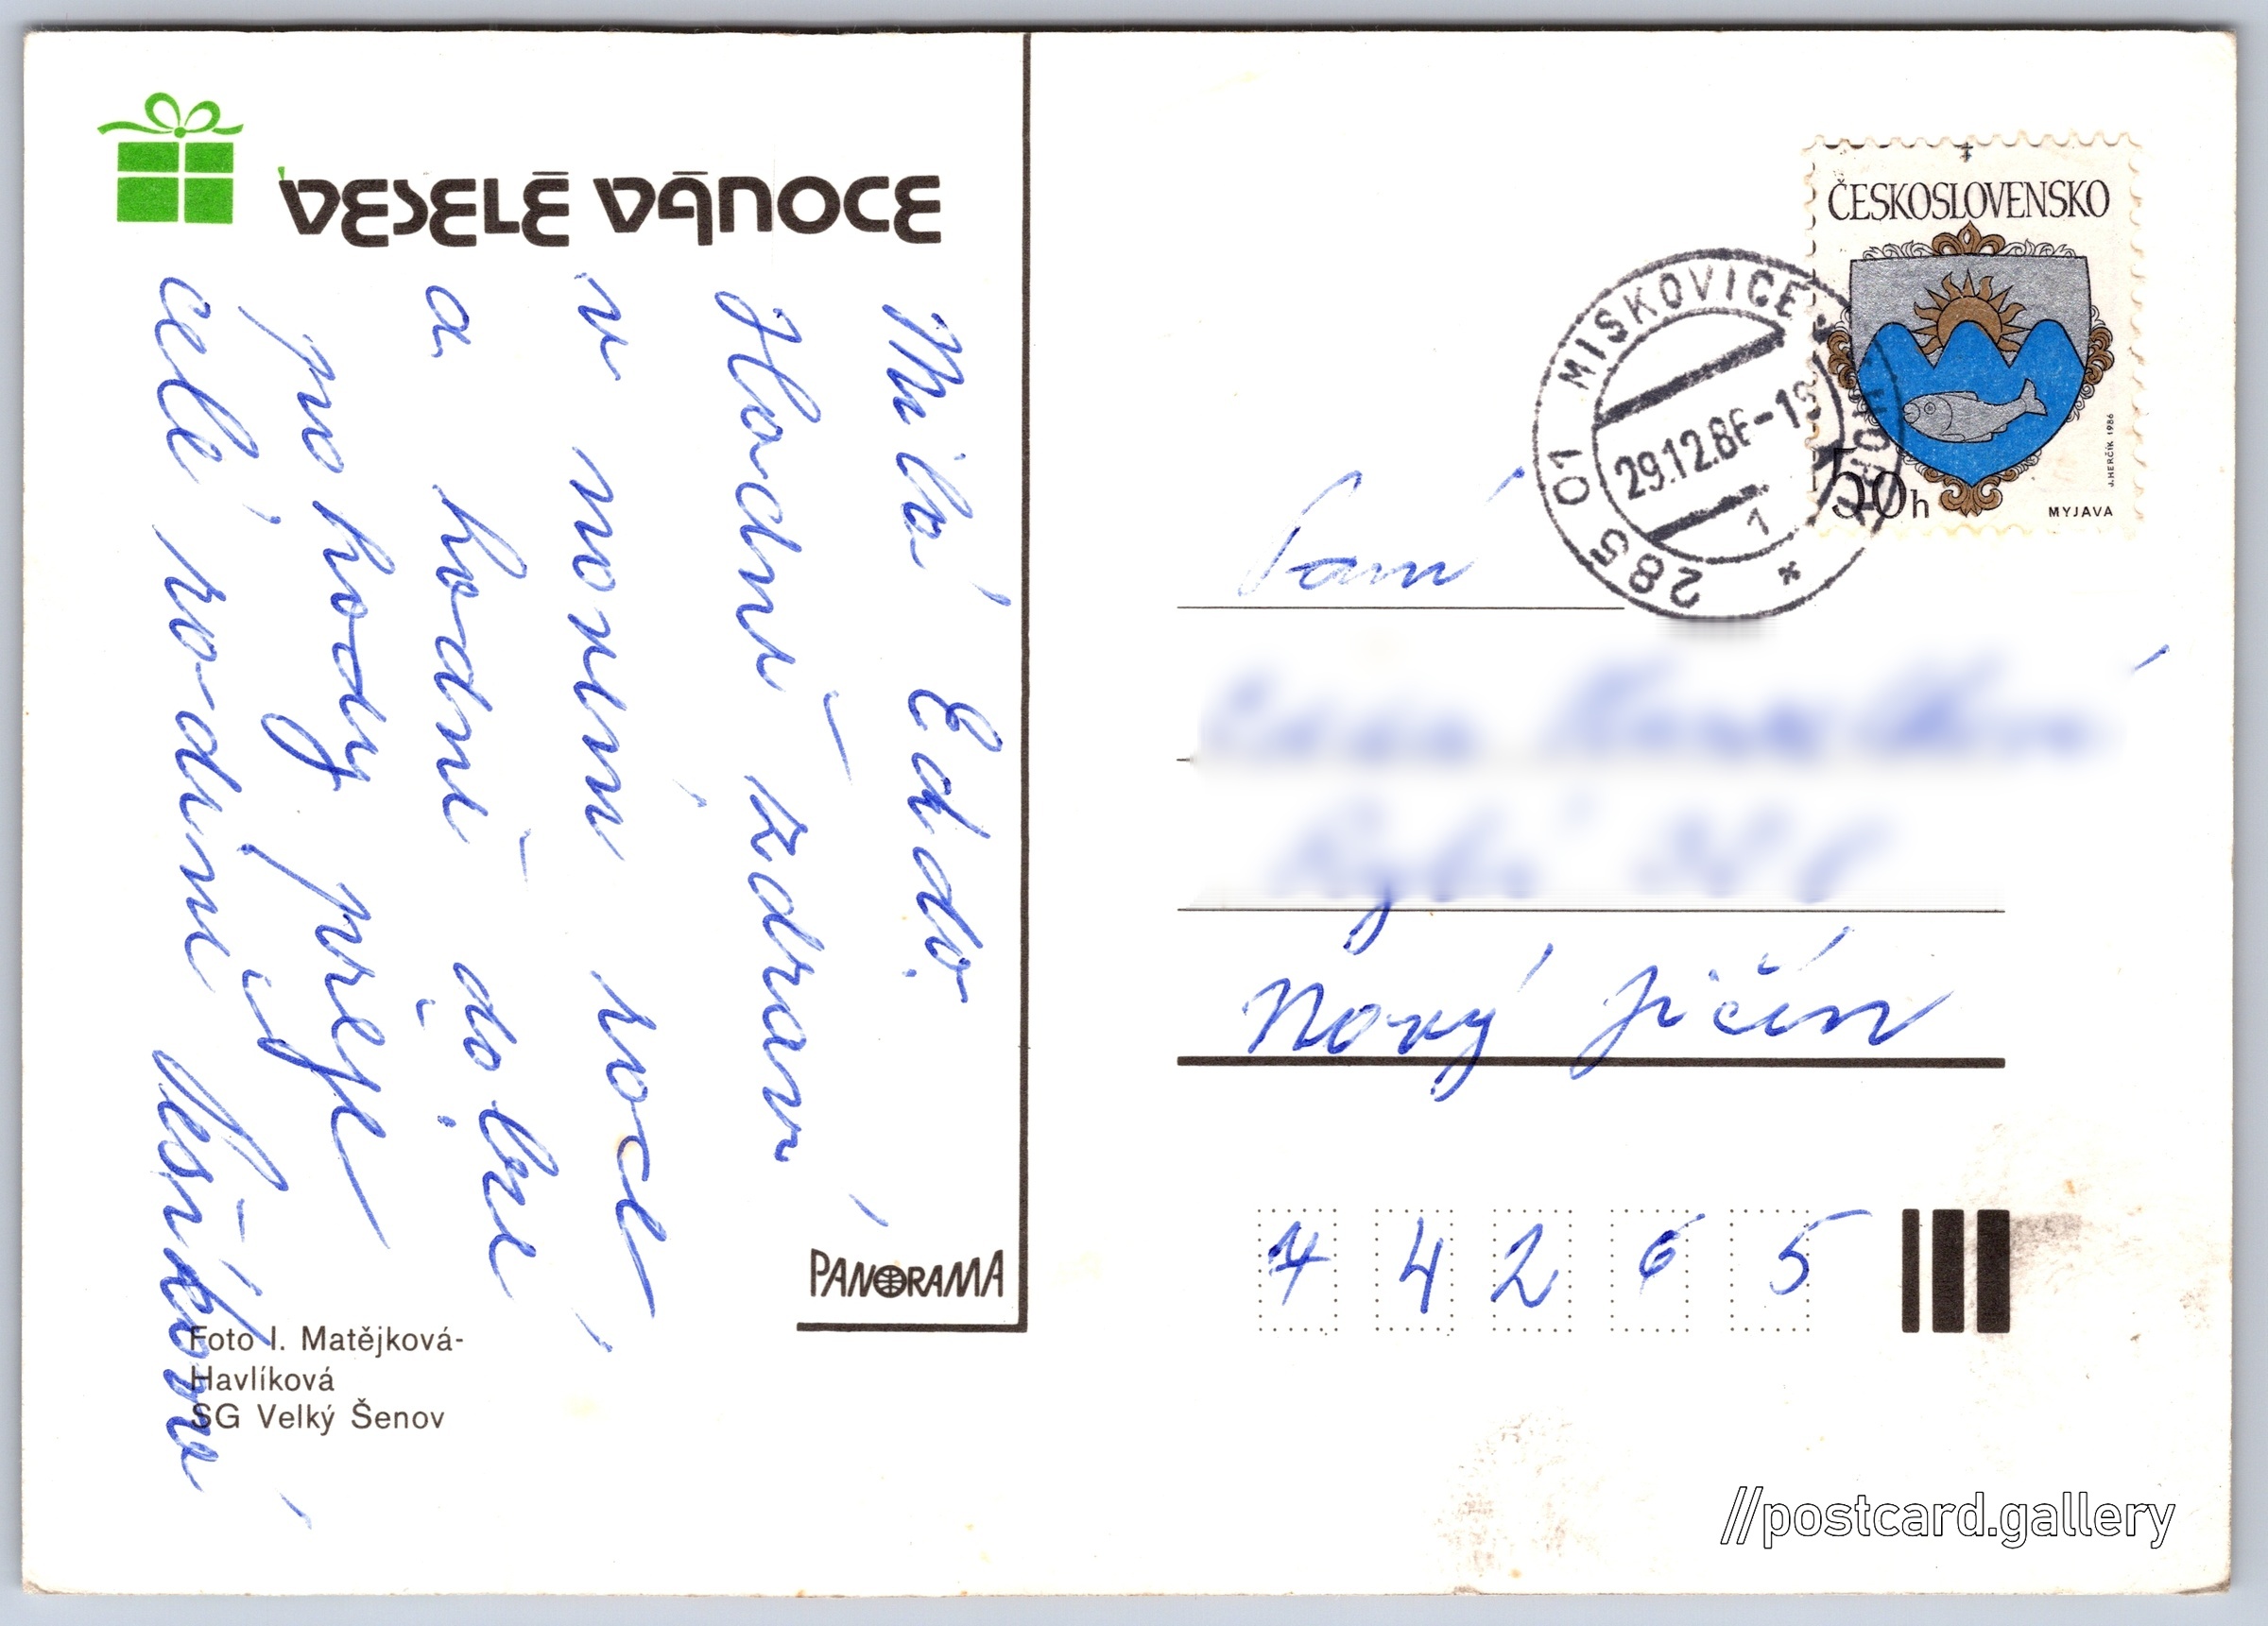 VESELÉ VÁNOCE
Milá Eddo
Hodně zdraví
v novém roce
a hodně dobré
pohody přeje
celé rodině Nešňková
PANORAMA
Foto I. Matějková-
Havlíková
SG Velký Šenov
ČESKOSLOVENSKO
50h
MYJAVA
J. HERČÍK 1986
285 01 MISKOVICE
29.12.86-18
1
Paní
Nový Jičín
74265
//postcard.gallery